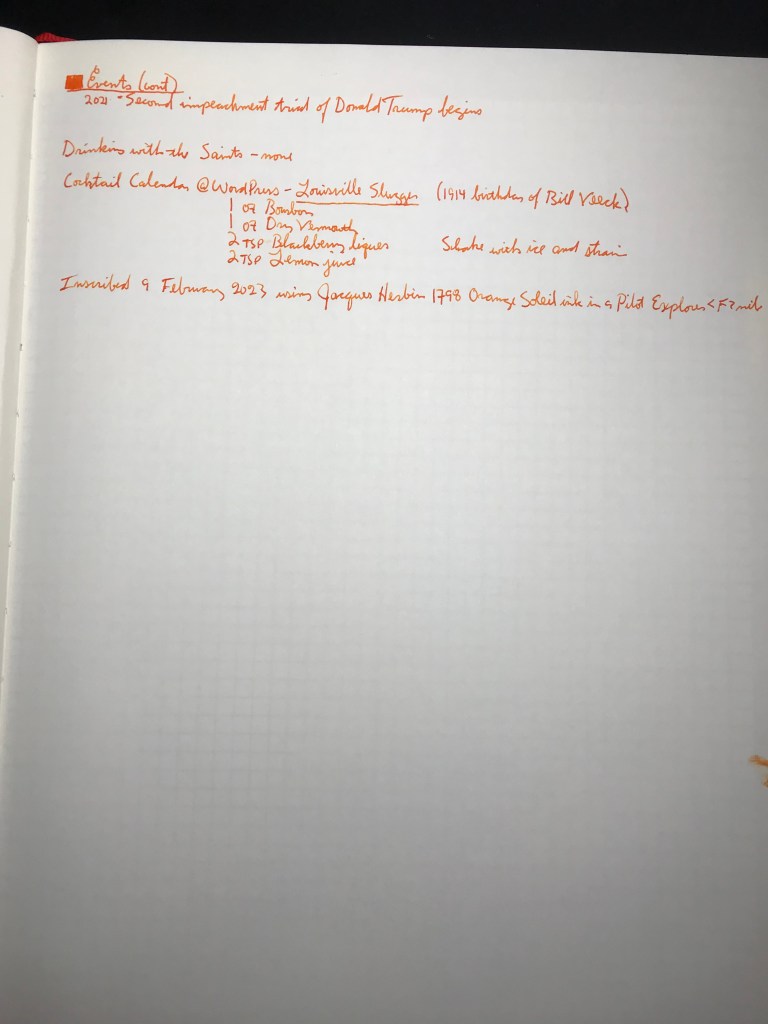 Events (cont)
2021 - Second impeachment trial of Donald Trump begins
Drinking with the Saints - none
Cocktail Calendar @WordPress - Louisville Slugger (1914 birthday of Bill Veeck)
1 oz Bourbon
1 oz Dry Vermouth
2 TSP Blackberry liquer Shake with ice and strain
2 TSP Lemon juice
Inscribed 9 February 2023 using Jacques Herbin 1798 Orange Soleil ink in a Pilot Explorer <F> nib